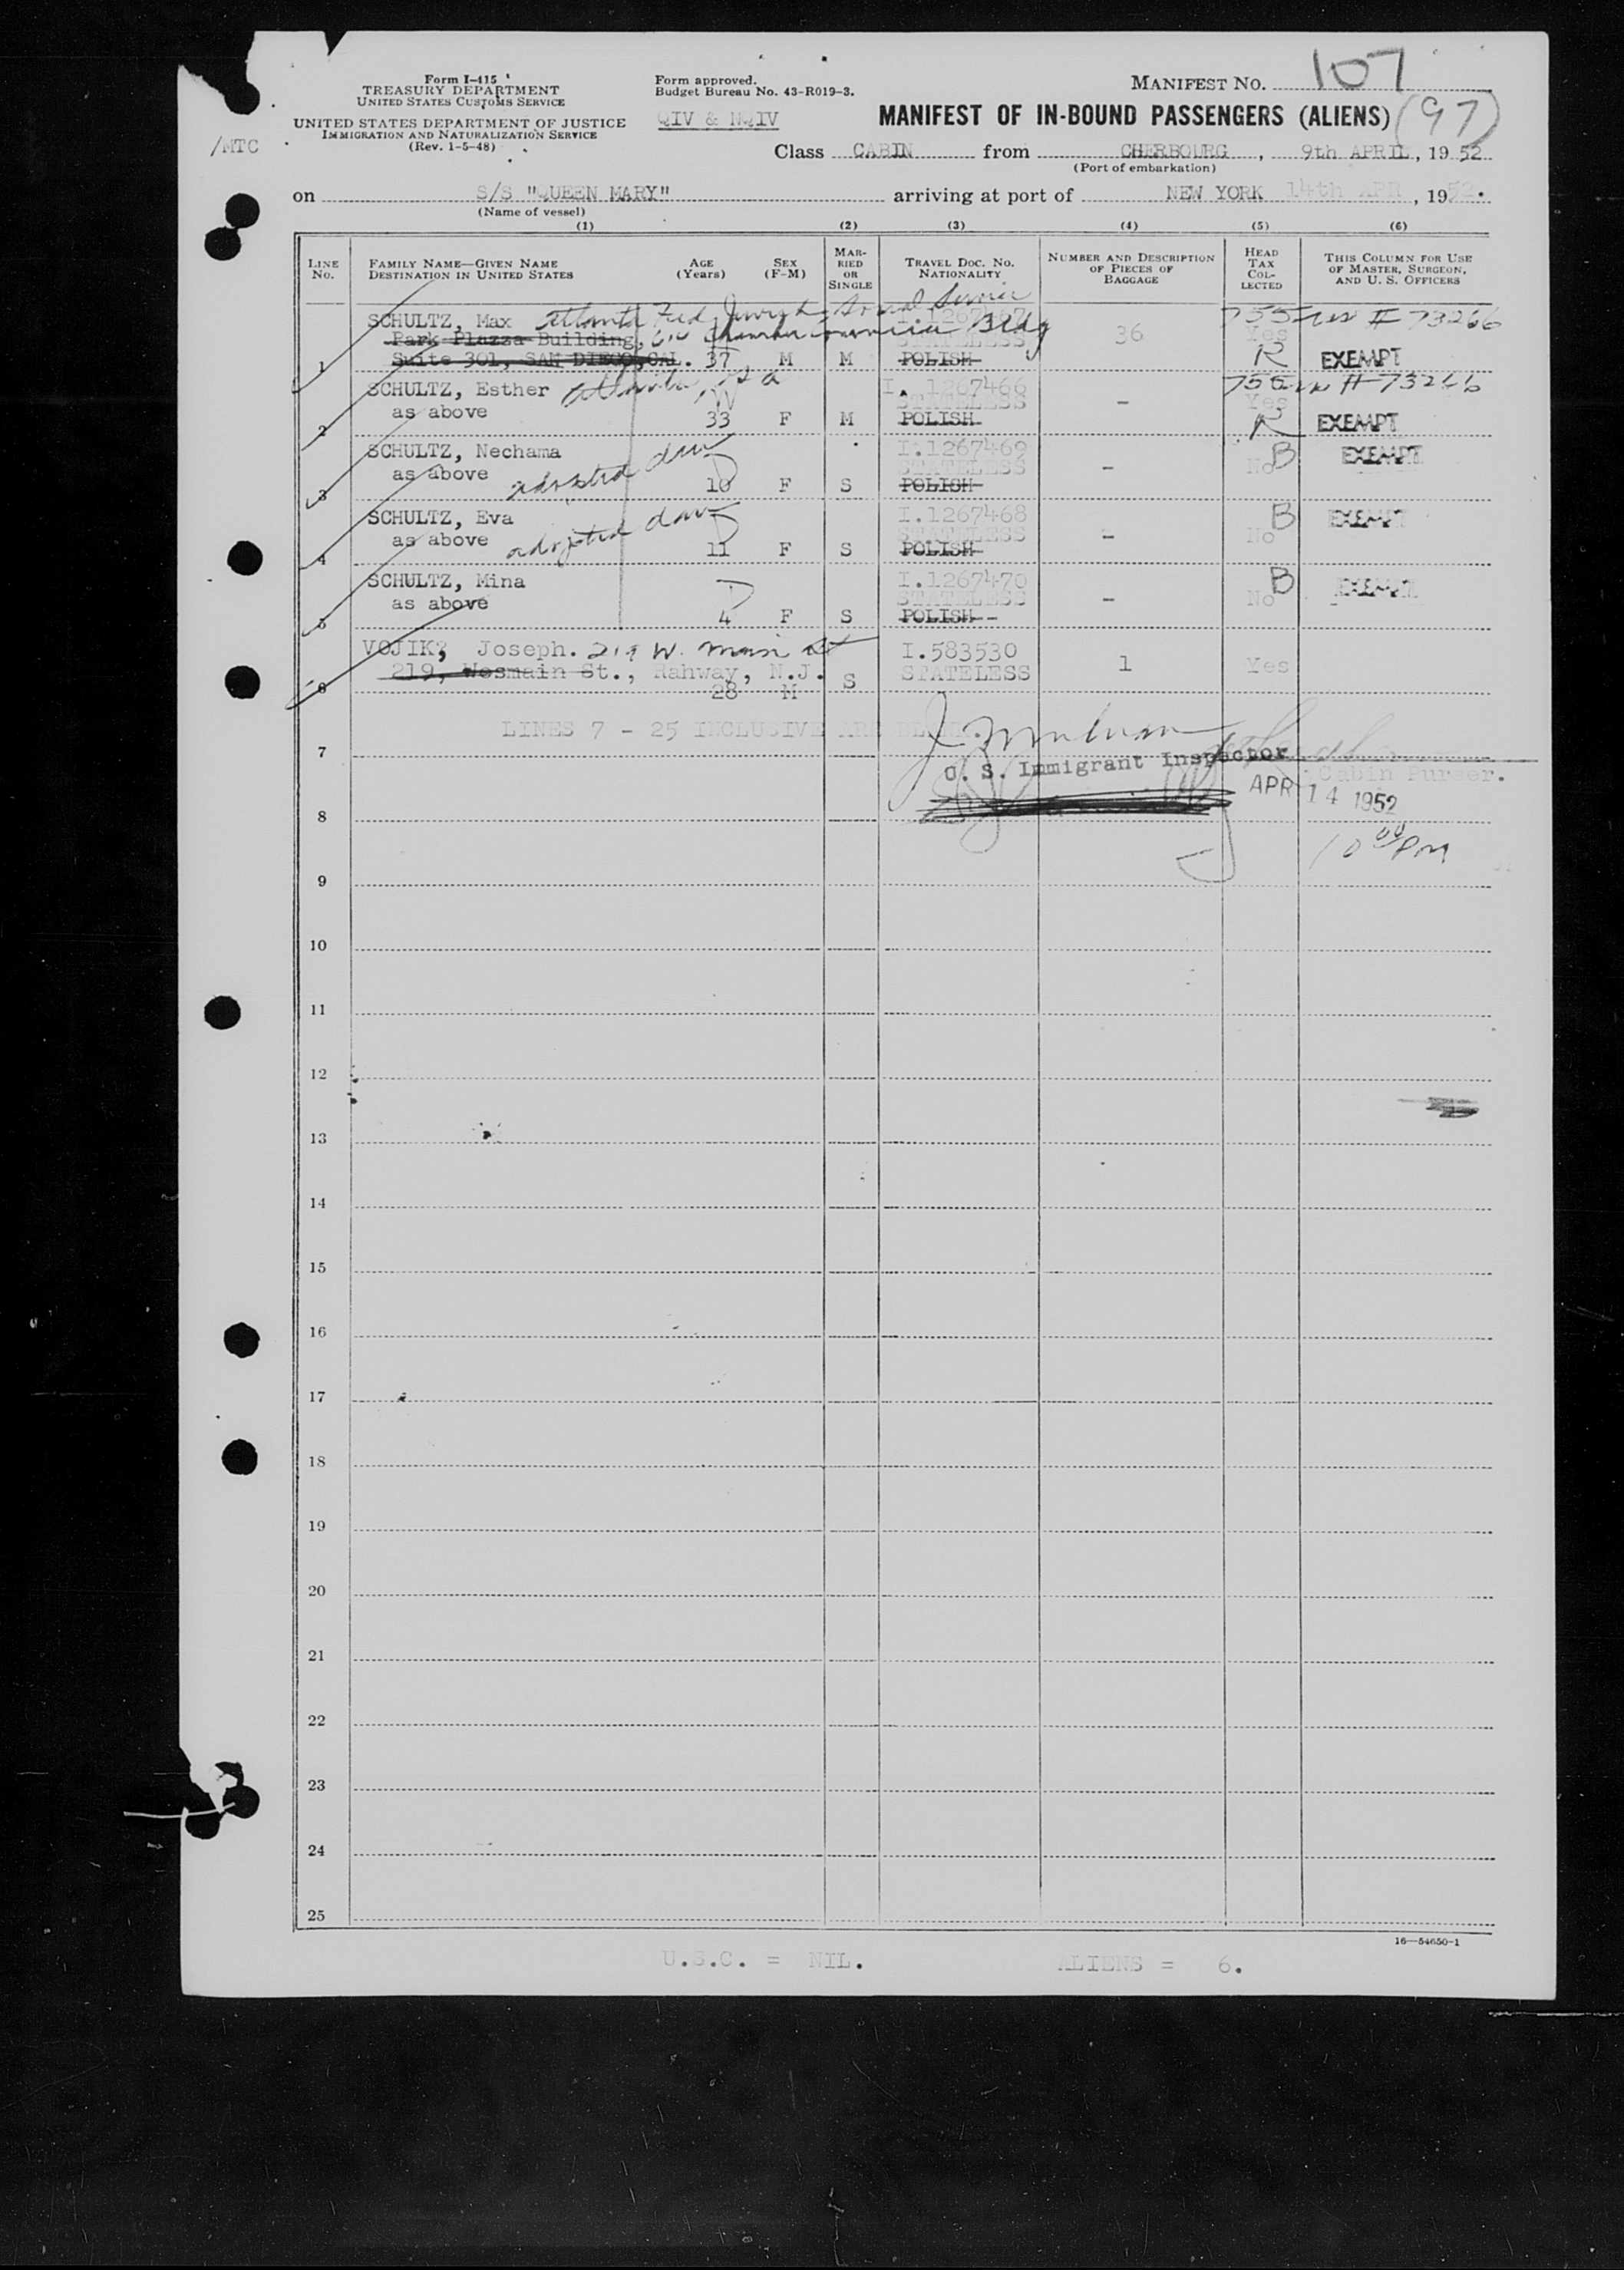 107
Form I-415
TREASURY DEPARTMENT
UNITED STATES CUSTOMS SERVICE
UNITED STATES DEPARTMENT OF JUSTICE
IMMIGRATION AND NATURALIZATION SERVICE
(Rev. 1-5-48)
/MTC
Form approved.
Budget Bureau No. 43-R019-3.
QIV & NQIV
MANIFEST NO.
MANIFEST OF IN-BOUND PASSENGERS (ALIENS) (97)
Class CABIN from CHERBOURG, 9th APRIL, 1952
(Port of embarkation)
on S/S "QUEEN MARY" arriving at port of NEW YORK 14th APR, 1952.
(Name of vessel)
(1) (2) (3) (4) (5) (6)
LINE NO.
FAMILY NAME—GIVEN NAME
DESTINATION IN UNITED STATES
AGE (Years)
SEX (F-M)
MARRIED OR SINGLE
TRAVEL DOC. NO.
NATIONALITY
NUMBER AND DESCRIPTION OF PIECES OF BAGGAGE
HEAD TAX COLLECTED
THIS COLUMN FOR USE OF MASTER, SURGEON, AND U. S. OFFICERS
SCHULTZ, Max Atlanta Fed Jewish Social Service
Park Plazza Building, Chamber Commerce Bldg 36 Yes
1 Suite 301, SAN DIEGO, CAL. 37 M M POLISH R EXEMPT
SCHULTZ, Esther Atlanta, Ga I. 1267466 # 73266
as above STATELESS - Yes
2 33 F M POLISH R EXEMPT
SCHULTZ, Nechama I.1267469 B EXEMPT
as above adopted dau STATELESS - No
3 10 F S POLISH
SCHULTZ, Eva I.1267468 B EXEMPT
as above adopted dau STATELESS - No
4 11 F S POLISH
SCHULTZ, Mina I.1267470 B EXEMPT
as above STATELESS - No
5 4 F S POLISH
VOJIK, Joseph. 219 W. Main St I.583530
219, Wosmain St., Rahway, N.J. STATELESS 1 Yes
6 28 M S
LINES 7 - 25 INCLUSIVE ARE
7
U. S. Immigrant Inspector
Cabin Purser.
APR 14 1952
8
10 00 PM
9
10
11
12
13
14
15
16
17
18
19
20
21
22
23
24
25
16—54650-1
U.S.C. = NIL. ALIENS = 6.